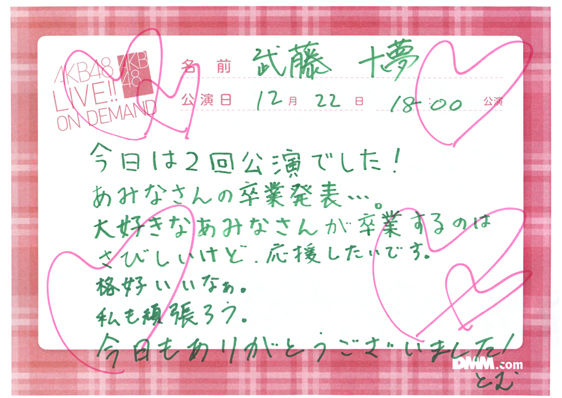 AKB48
LIVE!!
ON DEMAND
AKB
48
名前 武藤 十夢
公演日 12月 22日 18:00 公演
今日は2回公演でした!
あみなさんの卒業発表…。
大好きなあみなさんが卒業するのは
さびしいけど、応援したいです。
格好いいなぁ。
私も頑張ろう。
今日もありがとうございました!
DMM.com
とむ